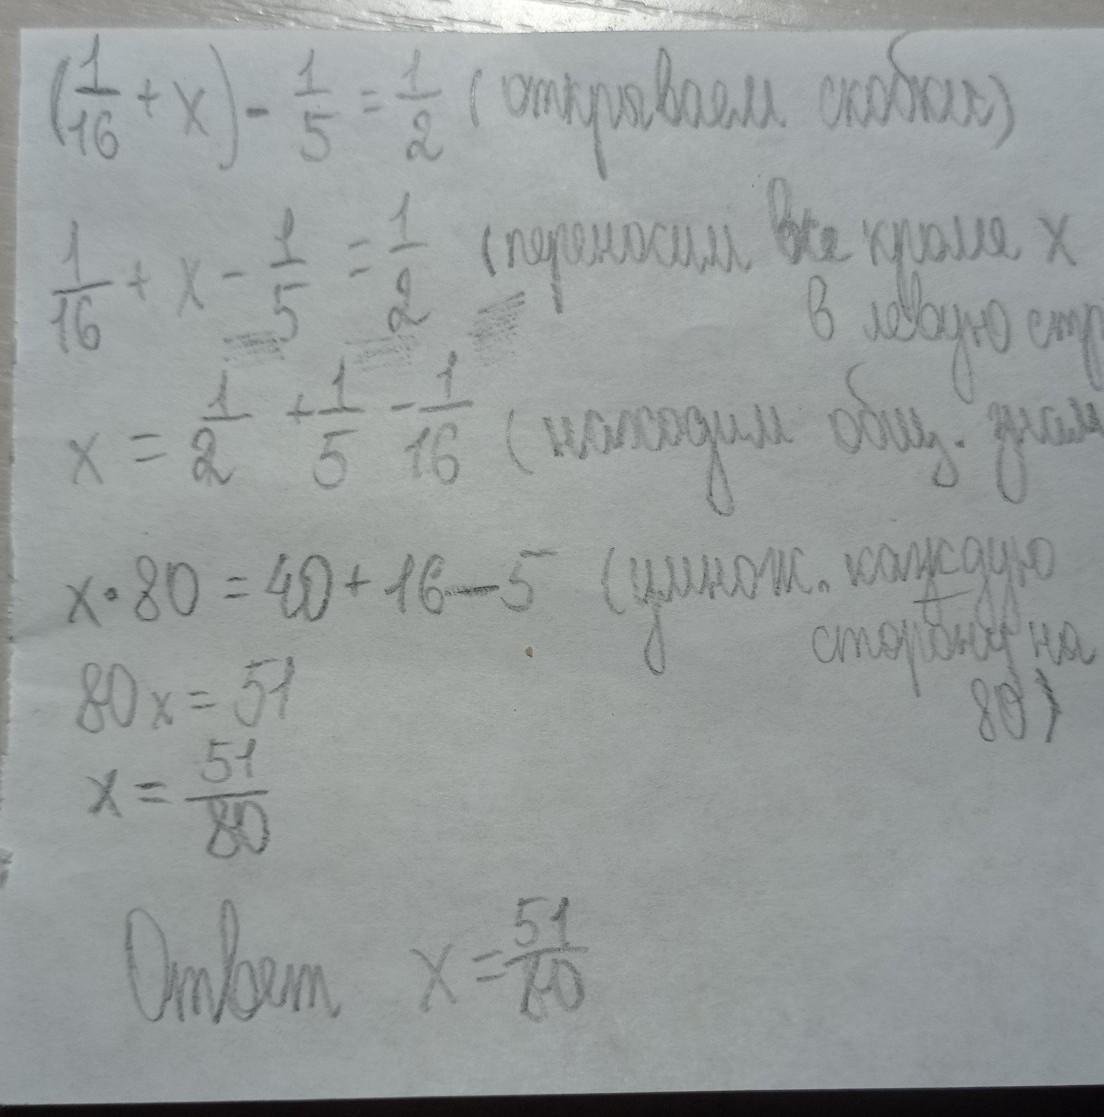 (1/16 + x) - 1/5 = 1/2 (открываем скобки)
1/16 + x - 1/5 = 1/2 (переносим все кроме x
в левую стр
x = 1/2 + 1/5 - 1/16 (находим общ. знам
x · 80 = 40 + 16 - 5 (умнож. каждую
сторону на
80)
80x = 51
x = 51/80
Ответ x = 51/80